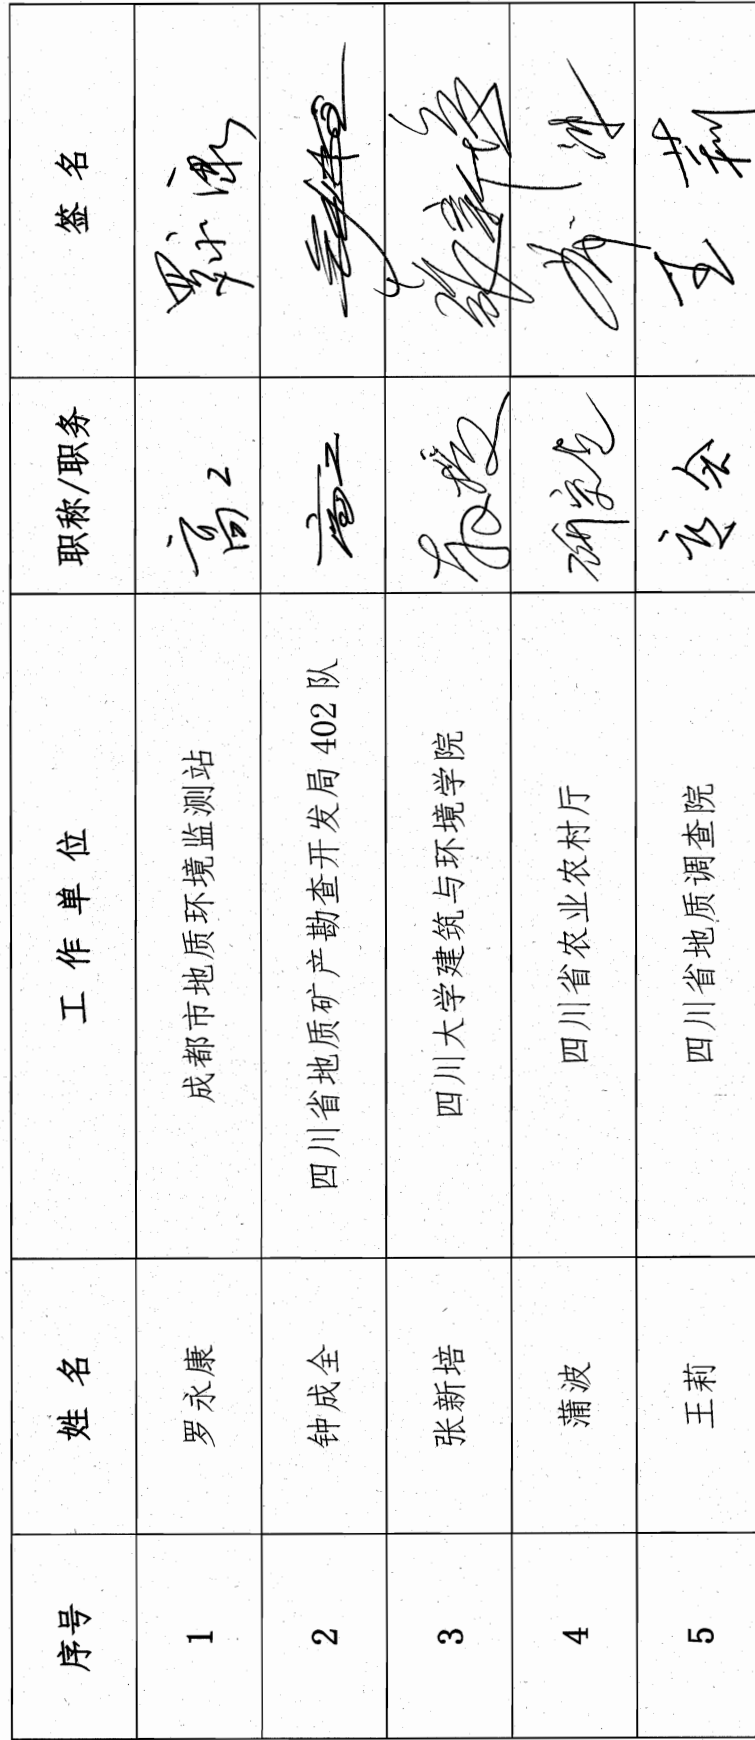 序号 姓名 工作单位 职称/职务 签名
1 罗永康 成都市地质环境监测站 高工 罗永康
2 钟成全 四川省地质矿产勘查开发局402队 高工
3 张新培 四川大学建筑与环境学院 教授 张新培
4 蒲波 四川省农业农村厅 研究员
5 王莉 四川省地质调查院 王莉